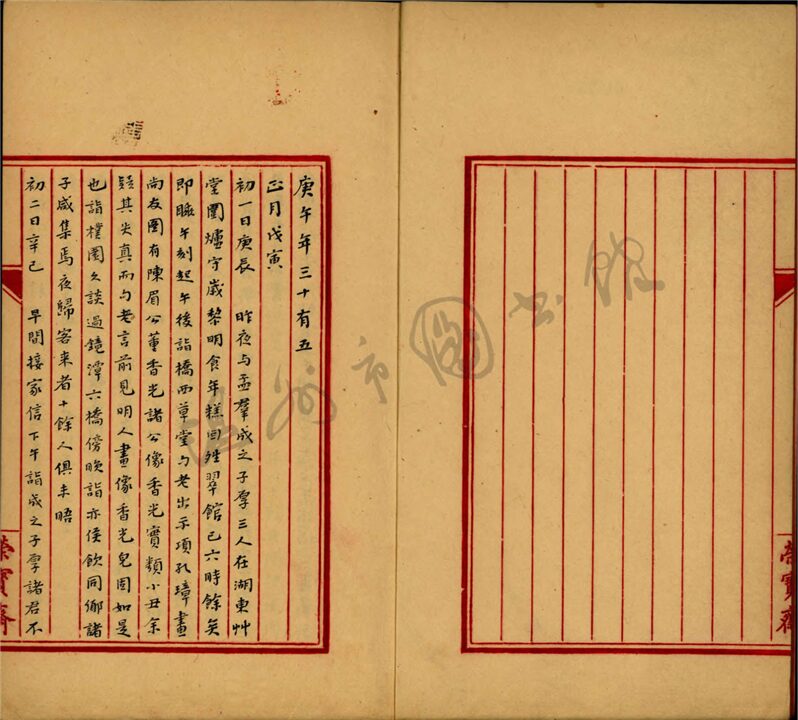 庚午年三十有五
正月戊寅
初一日庚辰 昨夜与孟羣成之子厚三人在湖東艸
堂圍爐守歲黎明食年糕回甡翠館已六時餘矣
即睡午刻起午後詣橋西草堂勹老出示項孔璋畫
尚友圖有陳眉公董香光諸公像香光實類小丑余
疑其失真而勹老言前見明人畫像香光皃固如是
也詣樸園久談過鏡潭六橋傍晚詣亦侯飲同鄉諸
子咸集焉夜歸客來者十餘人俱未晤
初二日辛巳 早間接家信下午詣成之子厚諸君不
榮寶齋
榮寶齋
温州市圖書館